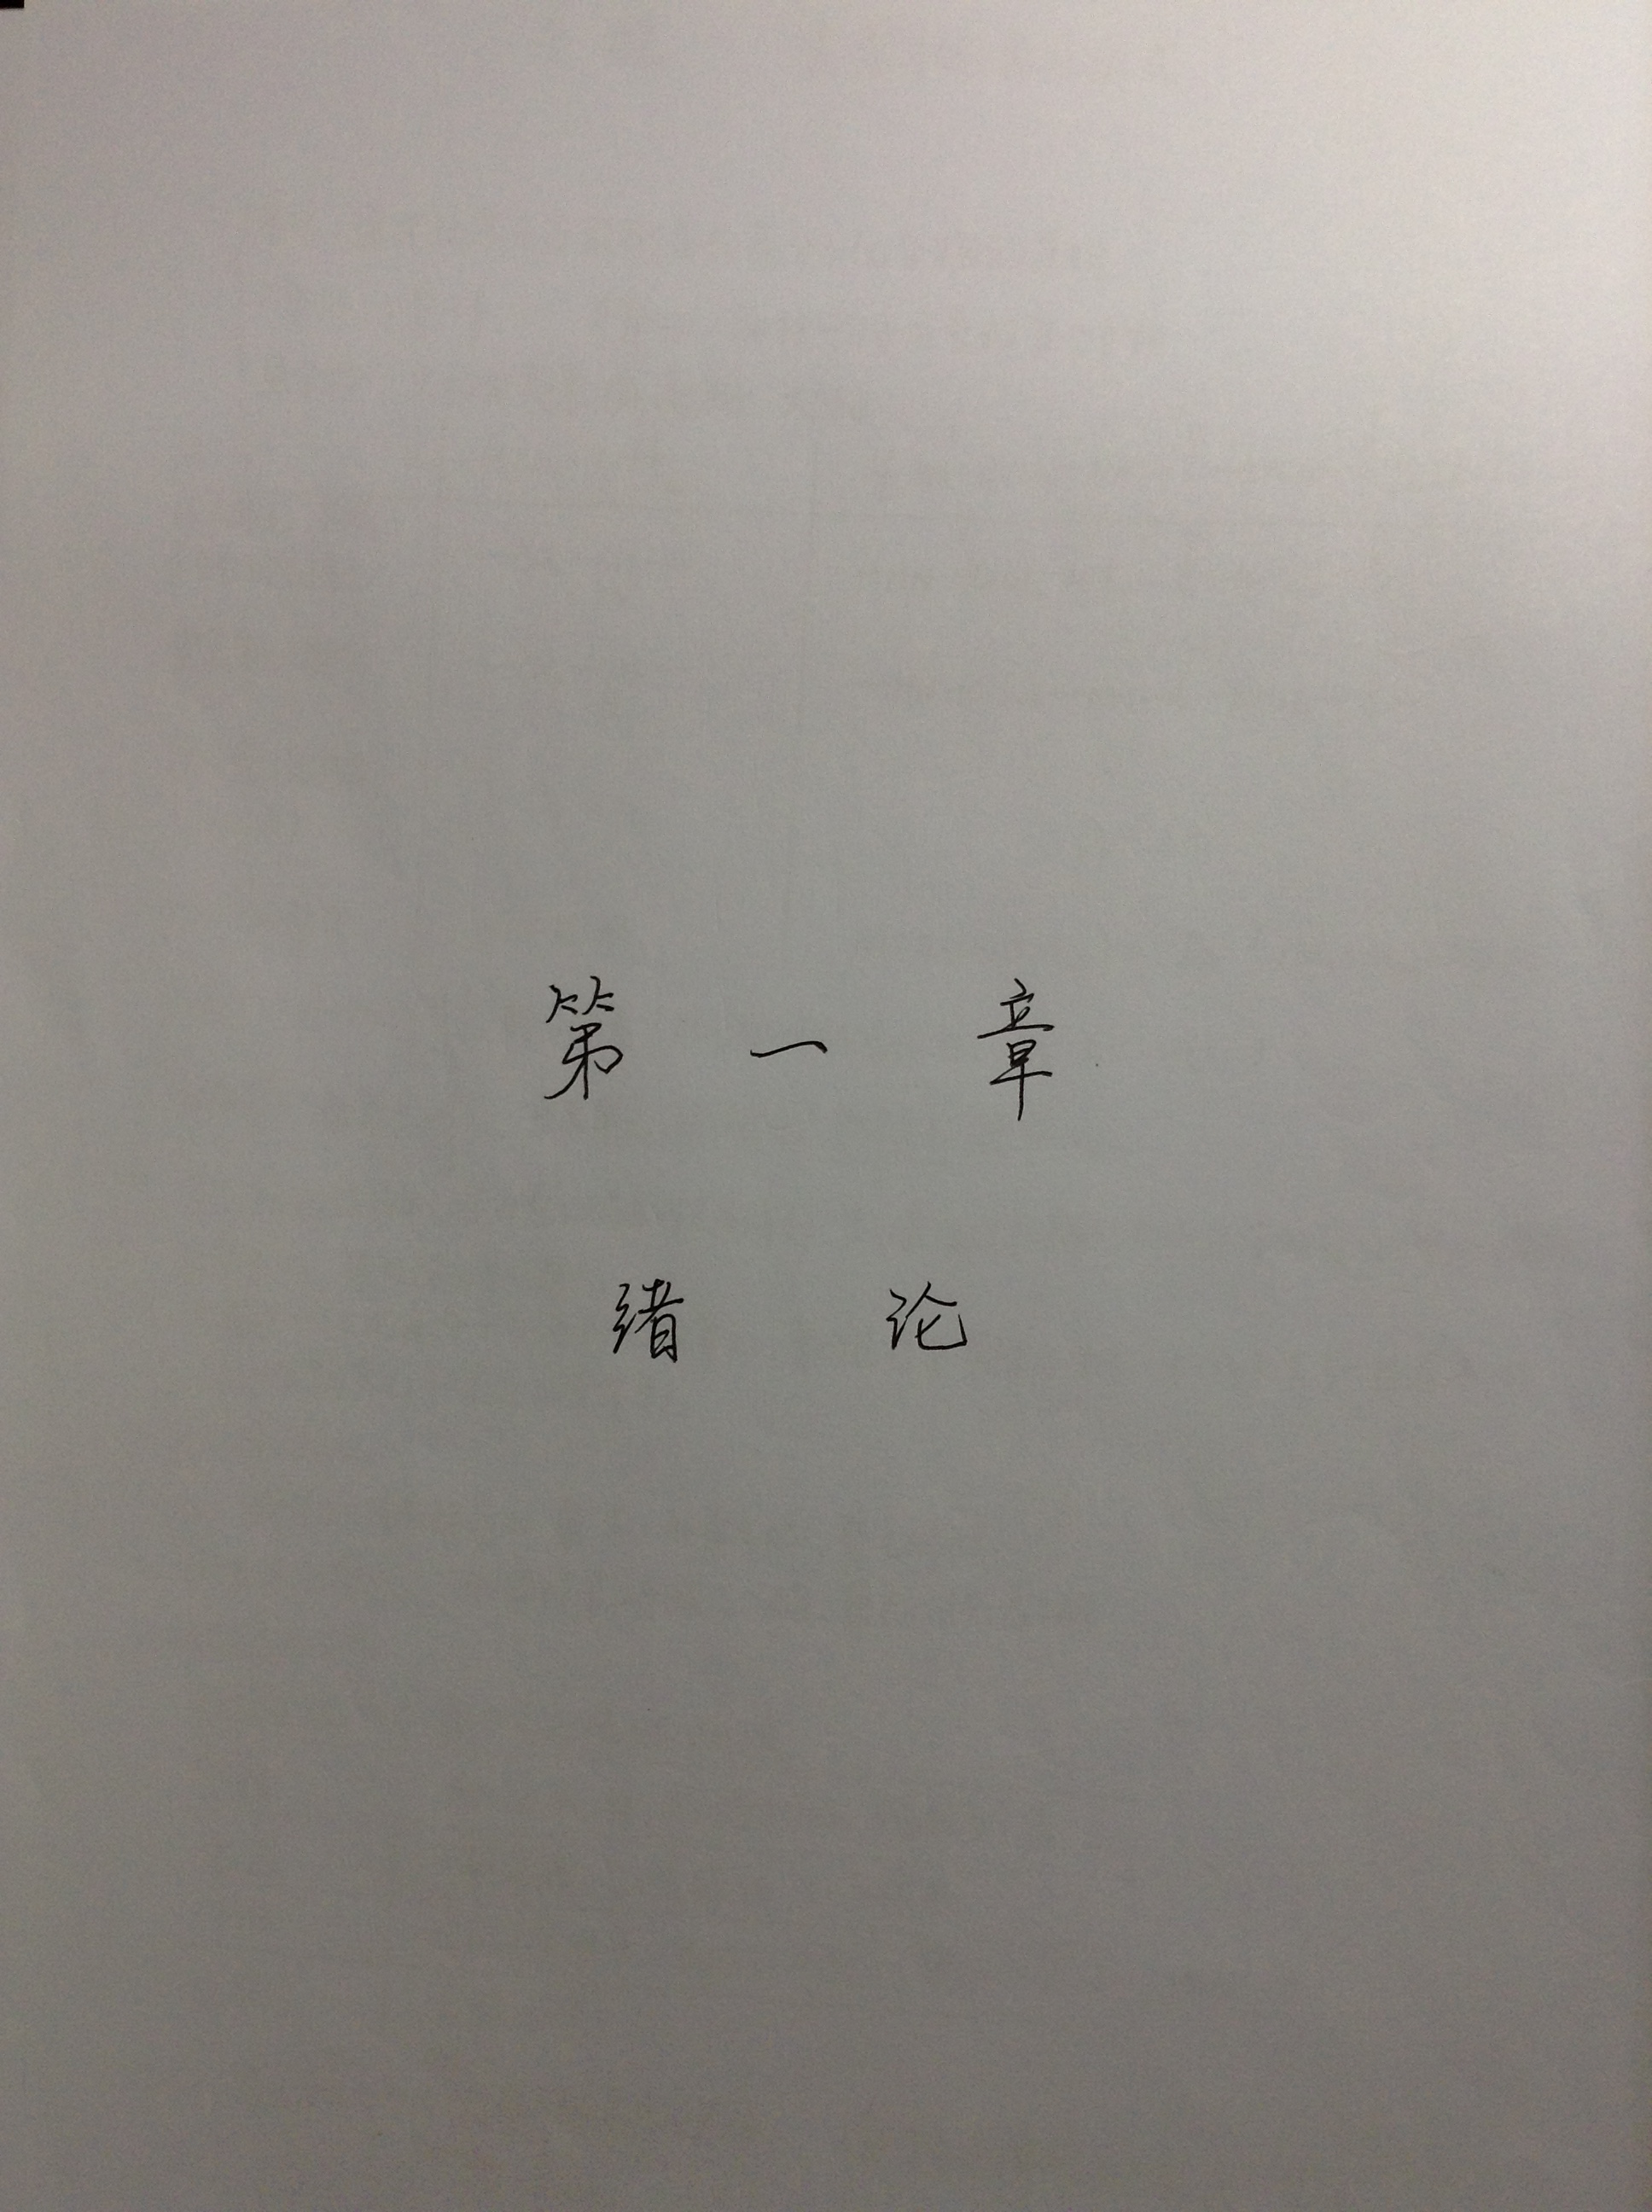 第一章
绪论